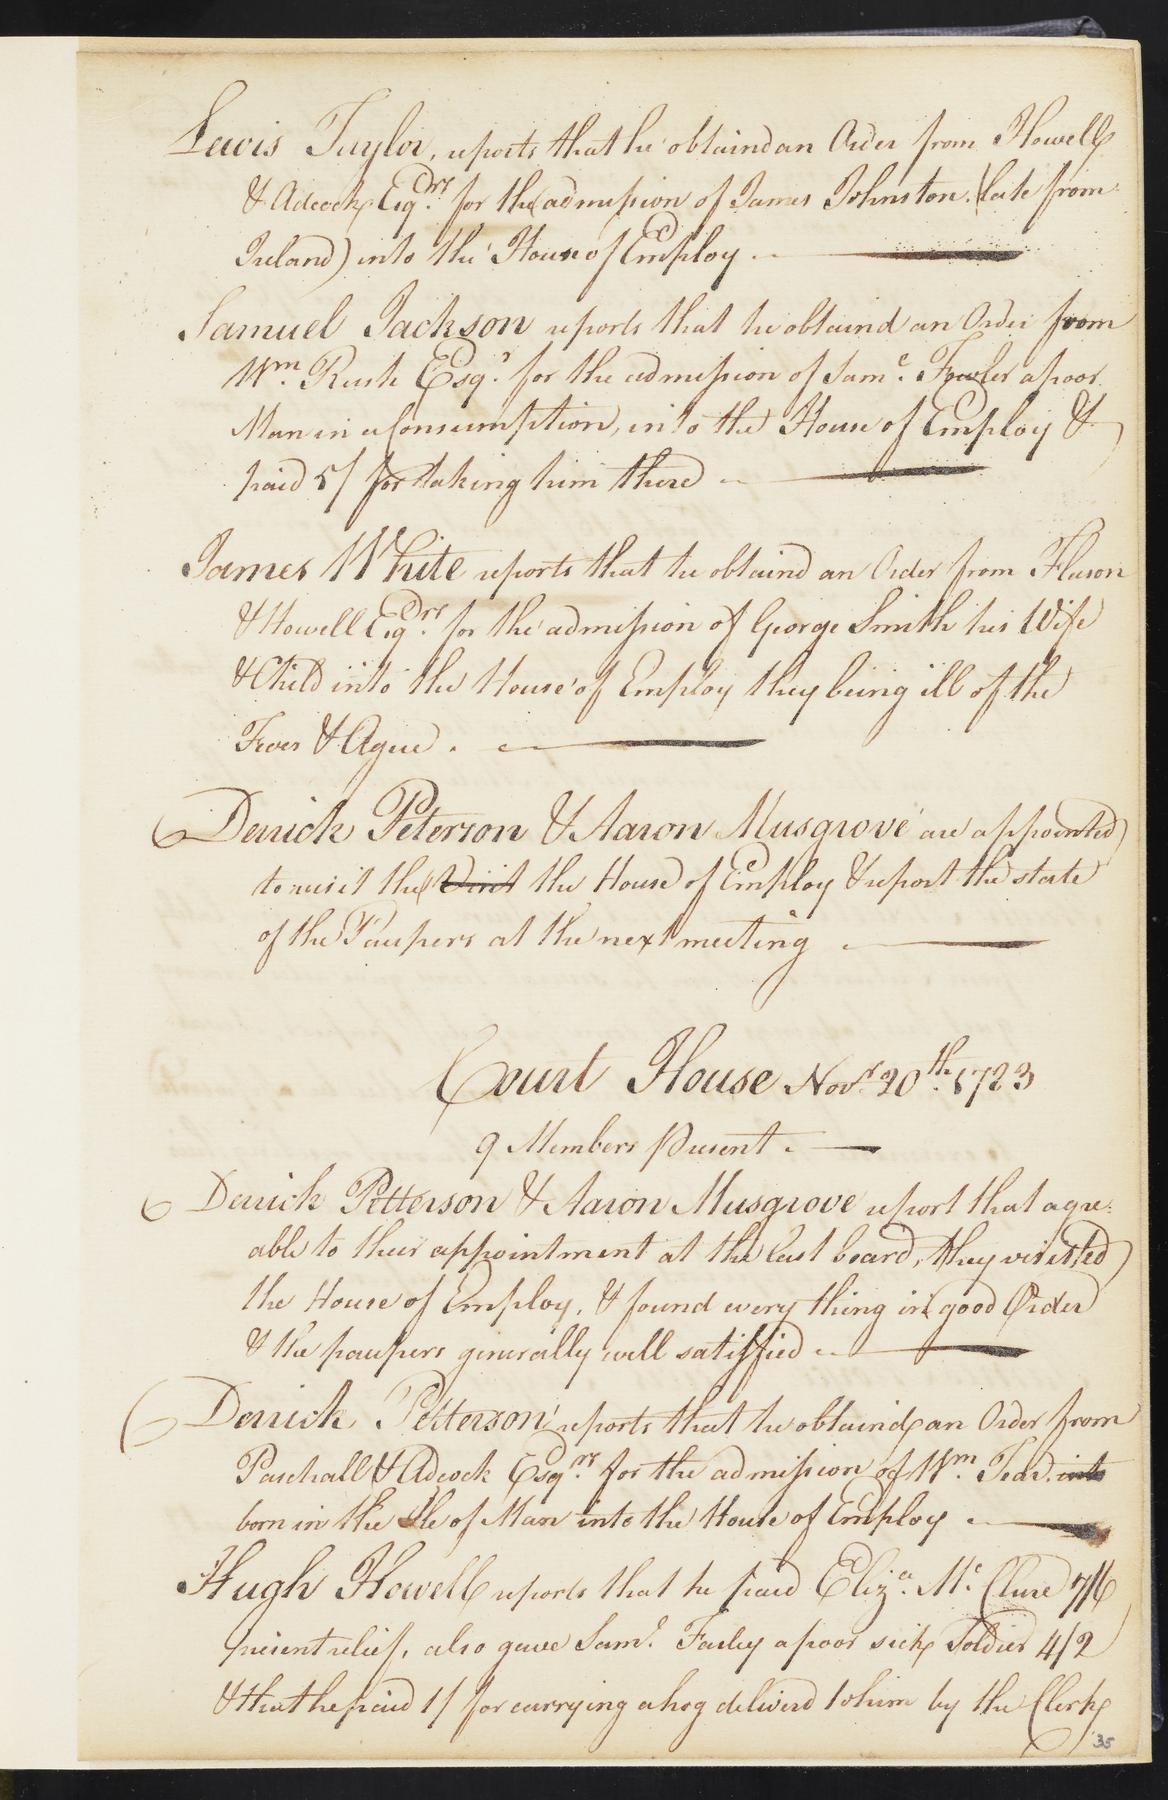 Lewis Taylor, reports that he obtaind an Order from Howell
& Adcock Esqrs. for the admission of James Johnston (late from
Ireland) into the House of Employ
Samuel Jackson reports that he obtaind an Order from
Wm. Rush Esqr. for the admission of Saml. Fowler a poor
Man in a Consumption, into the House of Employ &
paid 5/ for taking him there
James White reports that he obtaind an Order from Fleeson
& Howell Esqrs. for the admission of George Smith his Wife
& Child into the House of Employ they being ill of the
Fever & Ague.
Derrick Peterson & Aaron Musgrove are appointed
to visit the Visit the House of Employ & report the state
of the Paupers at the next meeting
Court House Novr. 20th. 1783
9 Members Present.
Derrick Petterson & Aaron Musgrove report that agre:
able to their appointment at the last board, they visitted
the House of Employ, & found every thing in good Order
& the paupers generally well satisfied
Derrick Petterson reports that he obtaind an Order from
Paschall & Adcock Esqrs. for the admission of Wm. Tear into
born in the Isle of Man into the House of Employ
Hugh Howell reports that he paid Eliza. Mc. Clure 7/6
present relief, also gave Saml. Farley a poor sick Soldier 4/2
& that he paid 1/ for carrying a hog deliverd to him by the Clerk
35